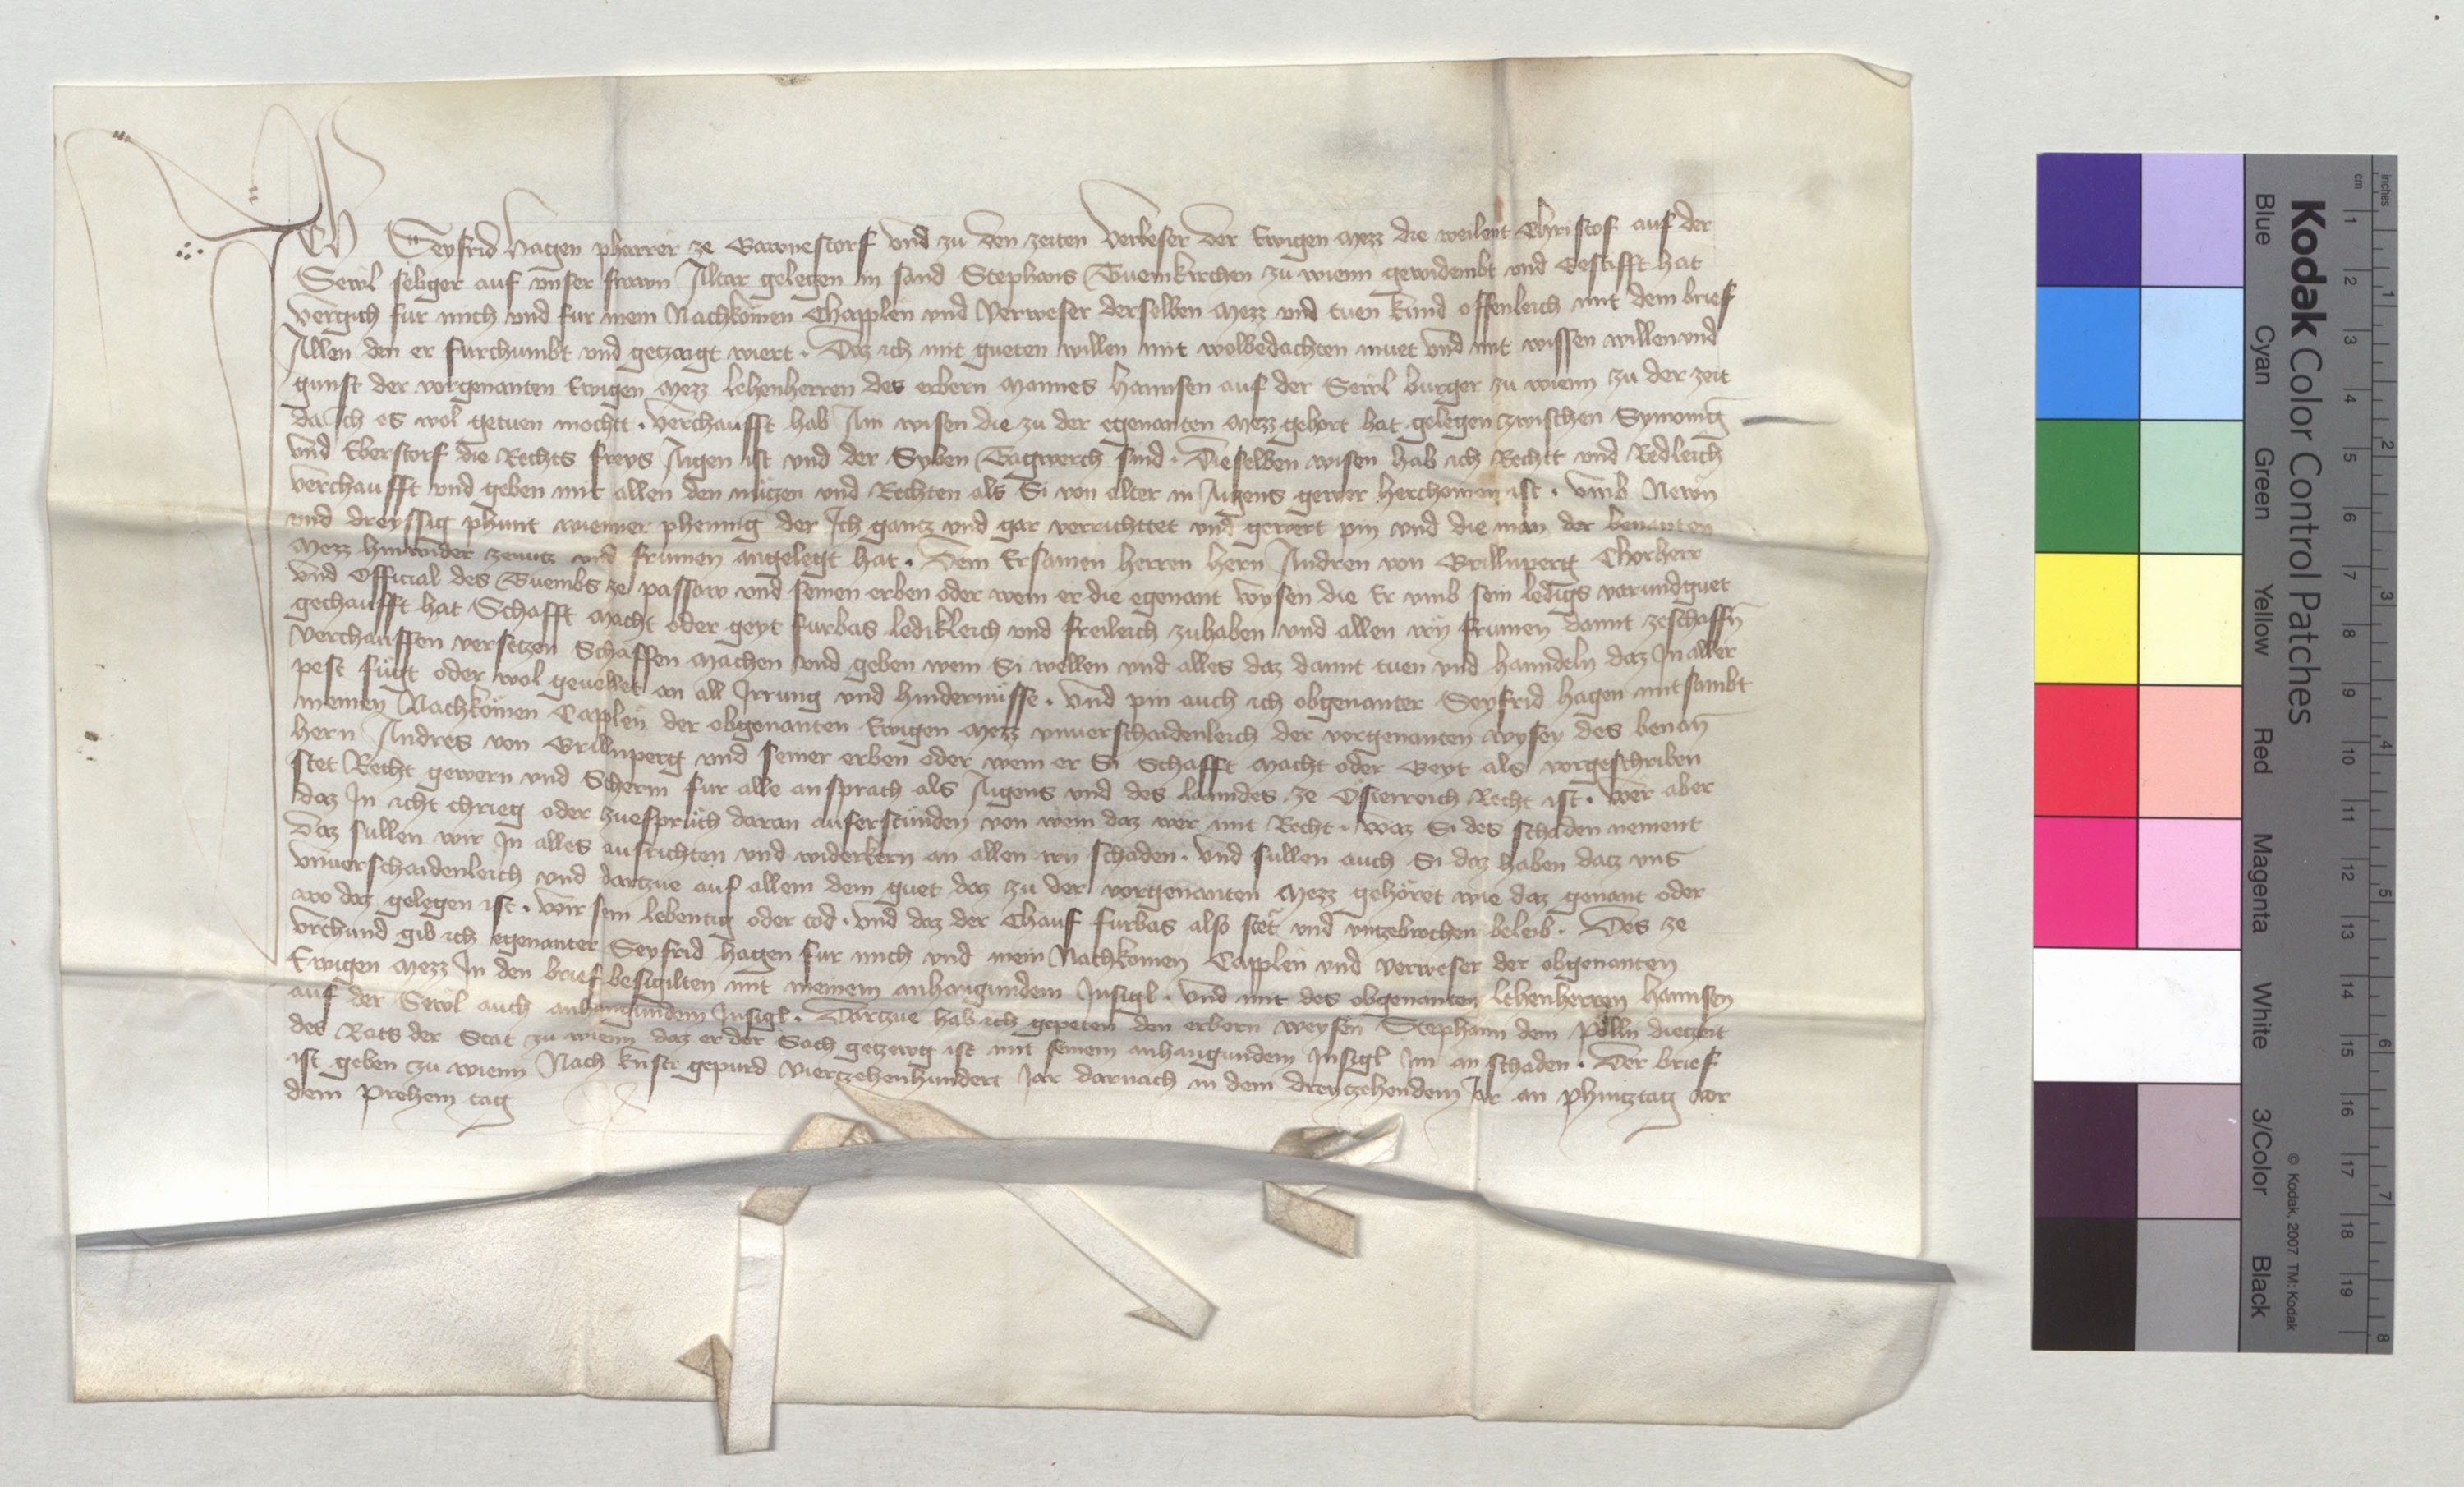 Ich Seyfrid Hagen pharrer ze Gawnestorf vnd zu den zeiten verbeser der Ewigen Mezz die weilent Christof auf der
Sewl seliger auf vnser frawn Altar gelegen in sand Stephans Tuemkirchen zu wienn gewidembt vnd Gestifft hat
vergich fur mich vnd fur mein Nachkomen Chapplen vnd Verweser derselben Mezz vnd tuen kund offenleich mit dem brief
Allen den er furchumbt vnd getzaigt wiert. Daz ich mit gueten willen mit wolbedachten muet vnd mit wissen willen vnd
gunst der vorgenanten Ewigen Mezz lehenherren des erbern Mannes Hannsen auf der Sewl burger zu wienn zu der zeit
da ich es wol getuen mocht. verchaufft hab Ain wisen die zu der egenanten Mezz gehort hat gelegen zwischen Symonig
vnd Eberstorf die Rechts freys Aigen ist vnd der Syben Tagwerch sind. Dieselben wisen hab ich Recht vnd Redleich
verchaufft vnd geben mit allen den nutzen vnd Rechten als Si von alter in Aigens gewer herchomen ist. vmb Newn
vnd dreyssig phunt wienner phennig der Ich gantz vnd gar verrichttet vnd gewert pin vnd die man der benanten
Mezz hinwider zenutz vnd frumen angelegt hat. Dem Ersamen herren hern Andren von Grillnperg Chorherr
vnd Official des Tuembs ze passaw vnd seinen erben oder wem er die egenant wysen die Er vmb sein ledigs varundguet
gechaufft hat Schafft Macht oder geyt furbas ledikleich vnd freileich zuhaben vnd allen irn frumen damit zeschaffn
verchauffen versetzen Schaffen Machen vnd geben wem Si wellen vnd alles daz damit tuen vnd hanndeln daz In aller
pest fugt oder wol geuellet an all Irrung vnd hindernusse. vnd pin auch ich obgenanter Seyfrid Hagen mitsambt
meinen Nachkomen Capplen der obgenanten Ewigen Mezz vnuerschaidenleich der vorgenanten wysen des benan
hern Andres von Grillnperg vnd seiner erben oder wem er Si Schafft Macht oder Geyt als vorgeschriben
stet Recht gewern vnd Scherm fur alle ansprach als Aigens vnd des lanndes ze Osterreich Recht ist. wer aber
daz In icht chrieg oder zuespruch daran auferstunden von wem daz wer mit Recht. waz Si des schaden nement
daz sullen wir In alles ausrichten vnd widerkern an allen irn schaden. vnd sullen auch Si daz haben datz vns
vnuerschaidenleich vnd dartzue auf allem dem guet daz zu der vorgenanten Mezz gehoret wie daz genant oder
wo daz gelegen ist. wir sein lebentig oder tod. vnd daz der Chauf furbas also stet vnd vntzebrochen beleib. Des ze
vrchund gib ich egenanter Seyfrid Hagen fur mich vnd mein Nachkomen Capplen vnd verweser der obgenanten
Ewigen Mezz In den brief besigilten mit meinem anhangundem Insigl. vnd mit des obgenanten lehenherren Hannsen
auf der Sewl auch anhangundem Insigl. Dartzue hab ich gepeten den erbern weysen Stephann dem Polln dietzeit
des Rats der Stat zu wienn daz er der Sach getzewg ist mit seinem anhangundem Insigl Im an schaden. Der brief
ist geben zu wienn Nach kristi gepurd viertzehenhundert Jar darnach in dem dreutzehendem Jar an phintztag vor
dem prehem tag
Kodak Color Control Patches
Blue Cyan Green Yellow Red Magenta White 3/Color Black
© Kodak, 2007 TM: Kodak
cm 1 2 3 4 5 6 7 8 9 10 11 12 13 14 15 16 17 18 19
inches 1 2 3 4 5 6 7 8